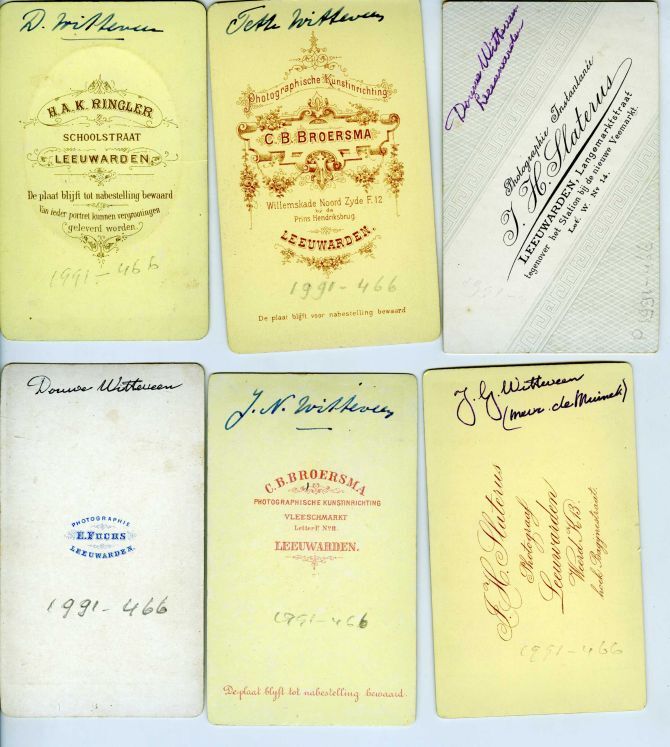 D. Witteveen
H.A.K. RINGLER
SCHOOLSTRAAT
LEEUWARDEN
De plaat blijft tot nabestelling bewaard
Van ieder portret kunnen vergrootingen
geleverd worden.
1991-466
Witteveen
Photographische Kunstinrichting
C.B. BROERSMA
Willemskade Noord Zyde F. 12
by de
Prins Hendriksbrug.
LEEUWARDEN.
1991-466
De plaat blijft voor nabestelling bewaard
Witteveen
Leeuwarden
Photographie Instantanée
J. H. Slaterus
LEEUWARDEN, Langemarktstraat
tegenover het Station bij de nieuwe Veemarkt.
Let. W. No 14.
Douwe Witteveen
PHOTOGRAPHIE
E. FUCHS
LEEUWARDEN.
1991-466
J. N. Witteveen
C.B. BROERSMA
PHOTOGRAPHISCHE KUNSTINRICHTING
VLEESCHMARKT
LEEUWARDEN.
1991-466
De plaat blijft tot nabestelling bewaard.
J. G. Witteveen
(mevr. de Muinck)
J. H. Slaterus
Photograaf
Leeuwarden
1991-466